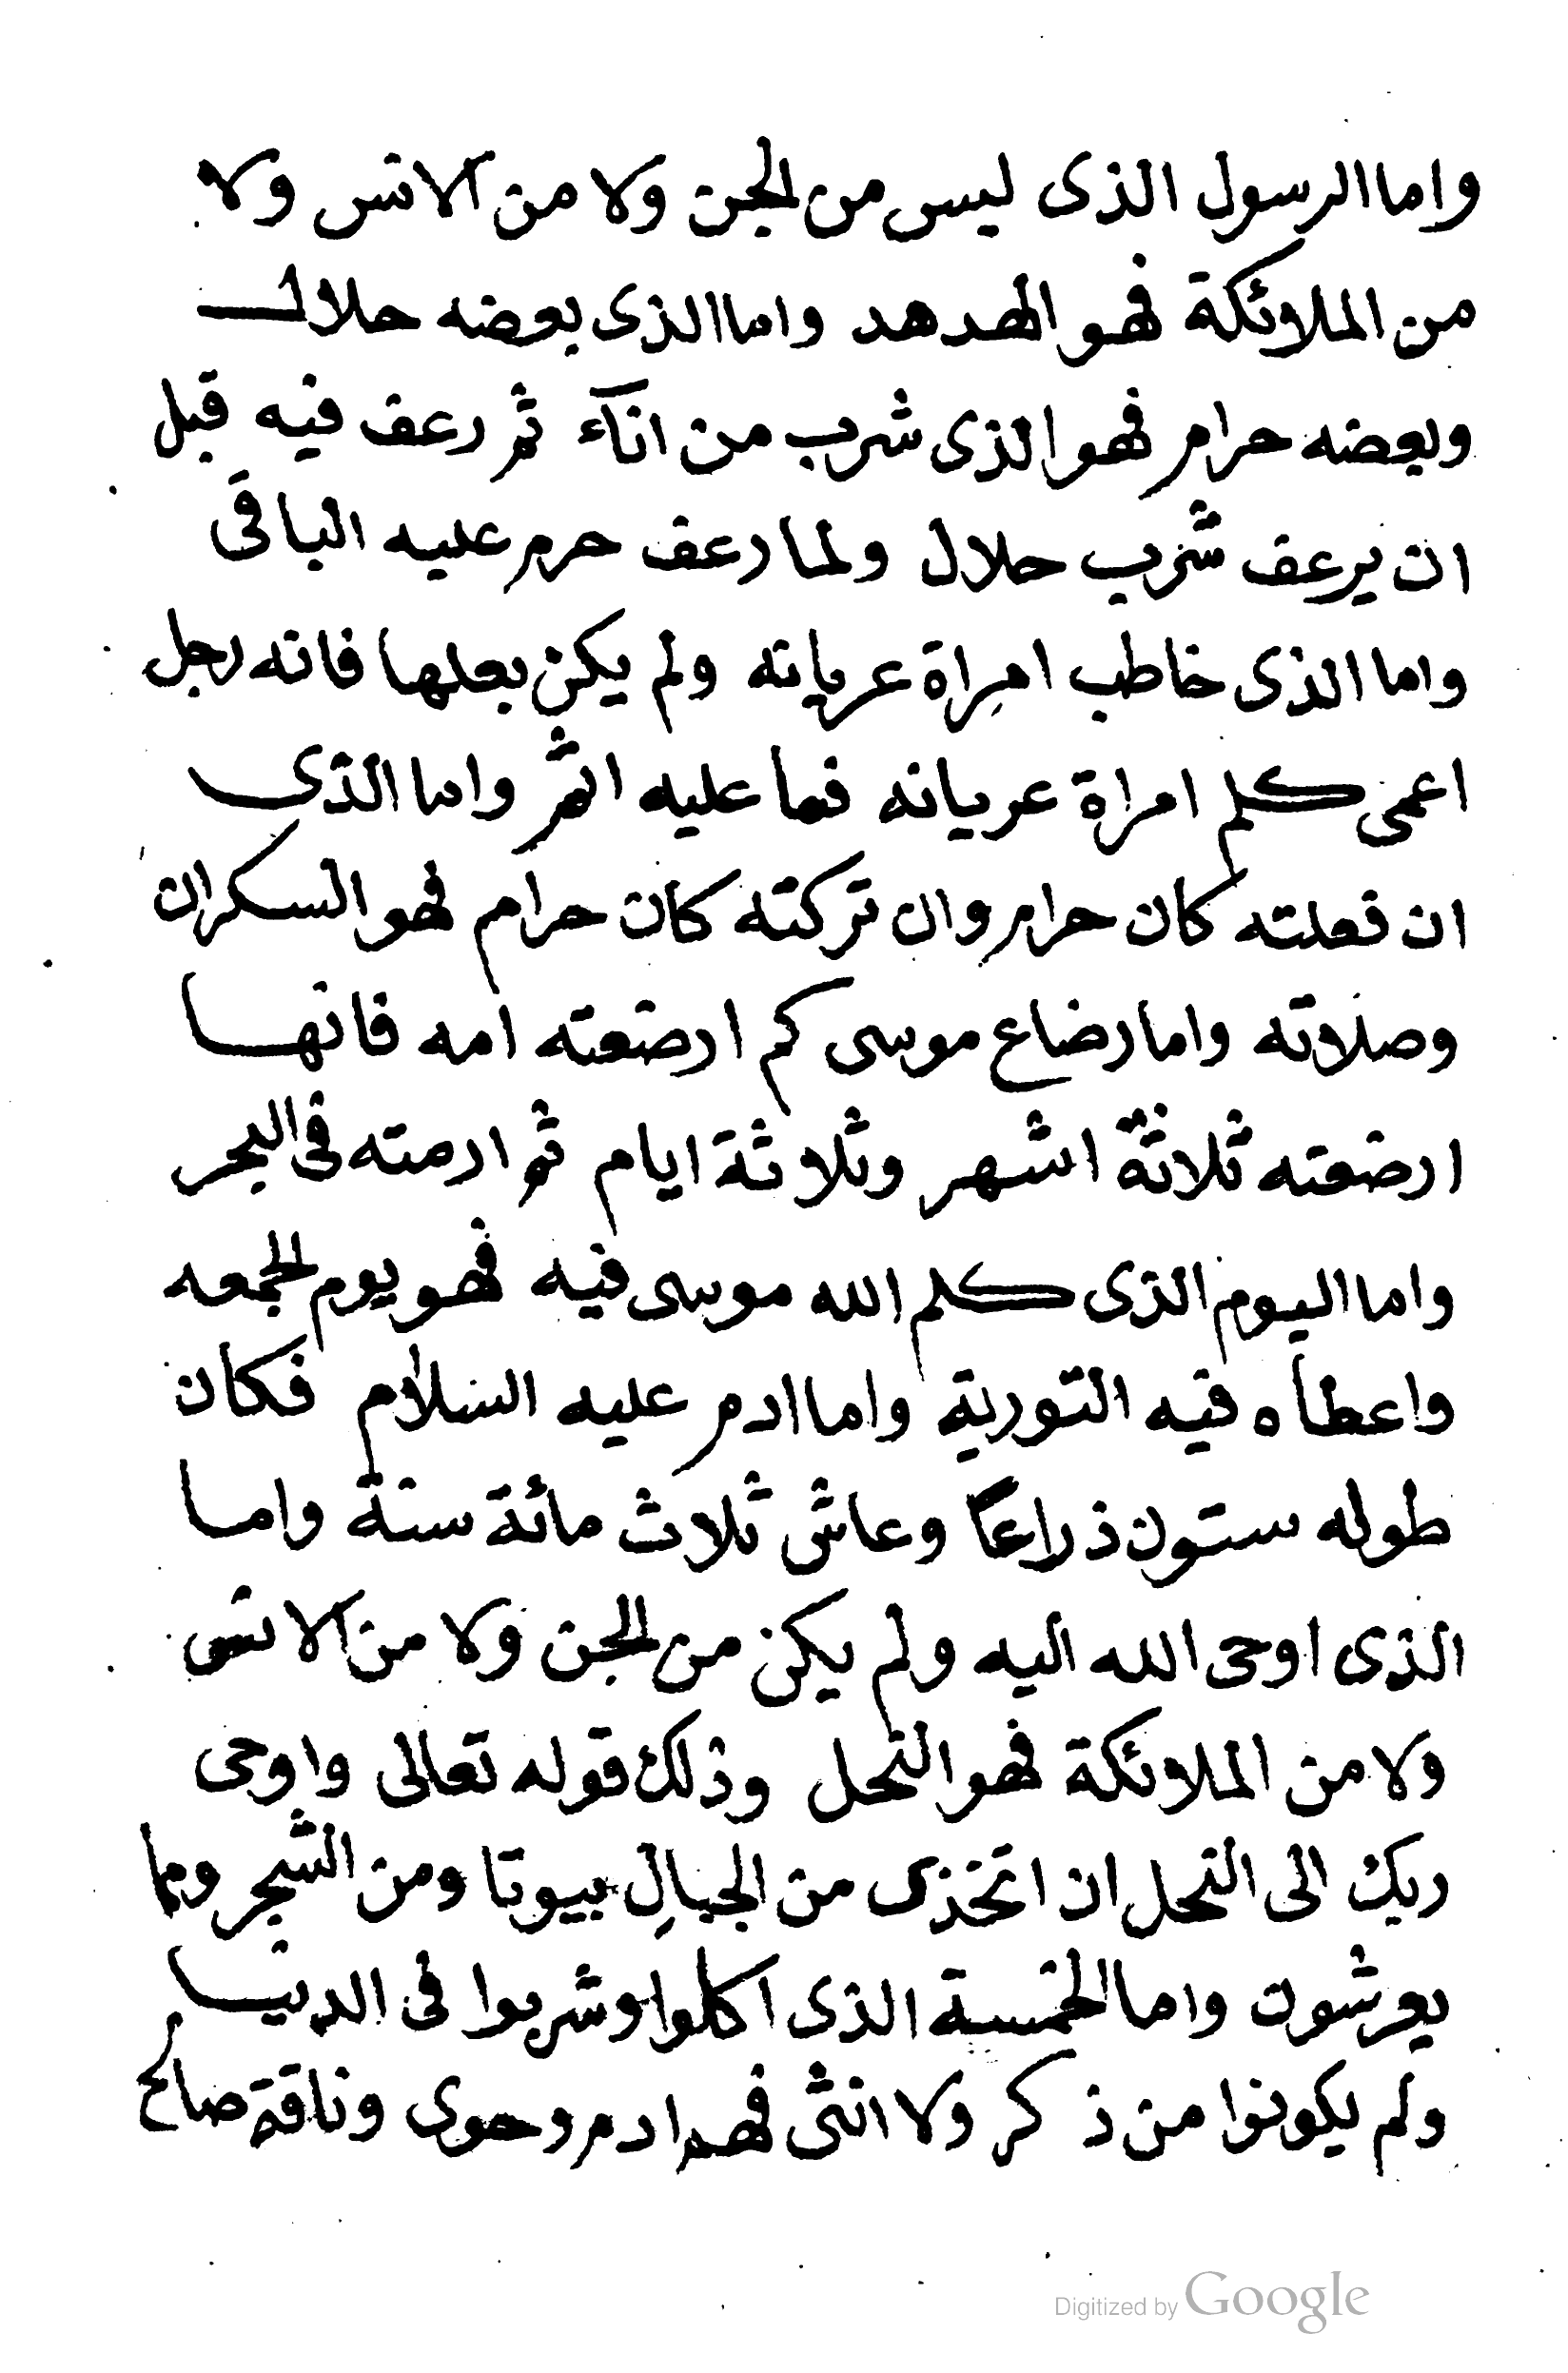 واما الرسول الذى ليس من الجن ولا من الانس ولا
من الملائكة فهو الهدهد واما الذى بعضه حلال
وبعضه حرام فهو الذى شرب من انآء ثم رعف فيه قبل
ان يرعف شرب حلال ولما رعف حرم عليه الباقى
واما الذى خاطب امراة عريانه ولم يكن بعلها فانه رجل
اعمى كلم امراة عريانه فما عليه اثم واما الذى
ان فعلته كان حرام وان تركته كان حرام فهو السكران
وصلاته واما رضاع موسى كم ارضعته امه فانها
ارضعته ثلاثة اشهر وثلاثة ايام ثم ارمته فى البحر
واما اليوم الذى كلم الله موسى فيه فهو يوم الجمعه
واعطاه فيه التورية واما ادم عليه السلام فكان
طوله ستون ذراعاً وعاش ثلاث مائة سنة واما
الذى اوحى الله اليه ولم يكن من الجن ولا من الانس
ولا من الملائكة فهو النحل وذلك قوله تعالى واوحى
ربك الى النحل ان اتخذى من الجبالِ بيوتا ومن الشجر ومما
يعرشون واما الخمسة الذى اكلوا وشربوا فى الدنيا
ولم يكونوا من ذكر ولا انثى فهم ادم وحوى وناقة صالح
Digitized by Google